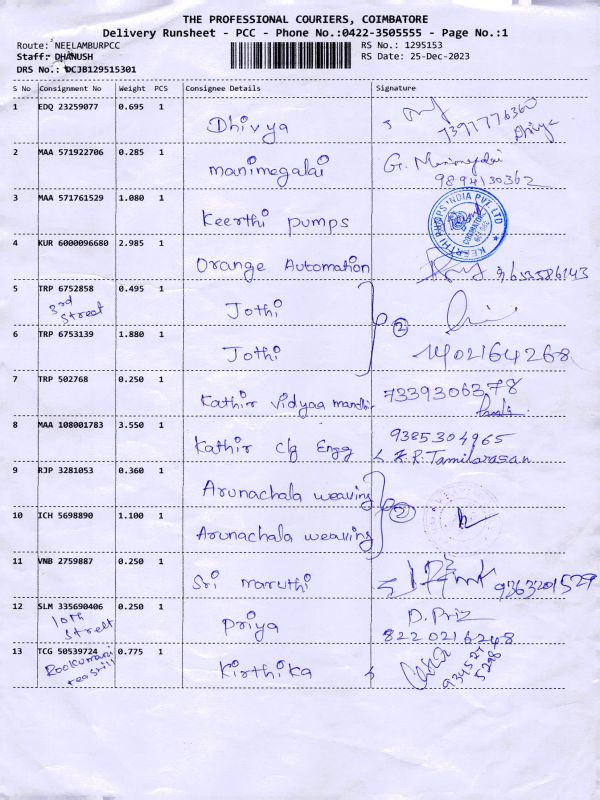 THE PROFESSIONAL COURIERS, COIMBATORE
Delivery Runsheet - PCC - Phone No.:0422-3505555 - Page No.:1
Route: NEELAMBURPCC RS No.: 1295153
Staff: DHANUSH RS Date: 25-Dec-2023
DRS No.: DCJB129515301
S No Consignment No Weight PCS Consignee Details Signature
1 EDQ 23259077 0.695 1
Dhivya 7397776360
Dhivya
2 MAA 571922706 0.285 1
manimegalai G. Manimegalai
9894130362
3 MAA 571761529 1.080 1
Keerthi pumps KEERTHI PUMPS INDIA PVT LTD
4 KUR 6000096680 2.985 1
Orange Automation
5 TRP 6752858 0.495 1
3rd Street Jothi
2
6 TRP 6753139 1.880 1
Jothi
7 TRP 502768 0.250 1
Kathir vidyaa mandhir 7339306378
8 MAA 108001783 3.550 1
Kathir clg Engg 9385304965
K.R.Tamilarasan
9 RJP 3281053 0.360 1
Arunachala weaving
2
10 ICH 5698890 1.100 1
Arunachala weaving
11 VNB 2759887 0.250 1
Sri maruthi 9363201529
12 SLM 335690406 0.250 1
10th Street Priya D. Priz
8220216248
13 TCG 50539724 0.775 1
Kirthika 934527
5298